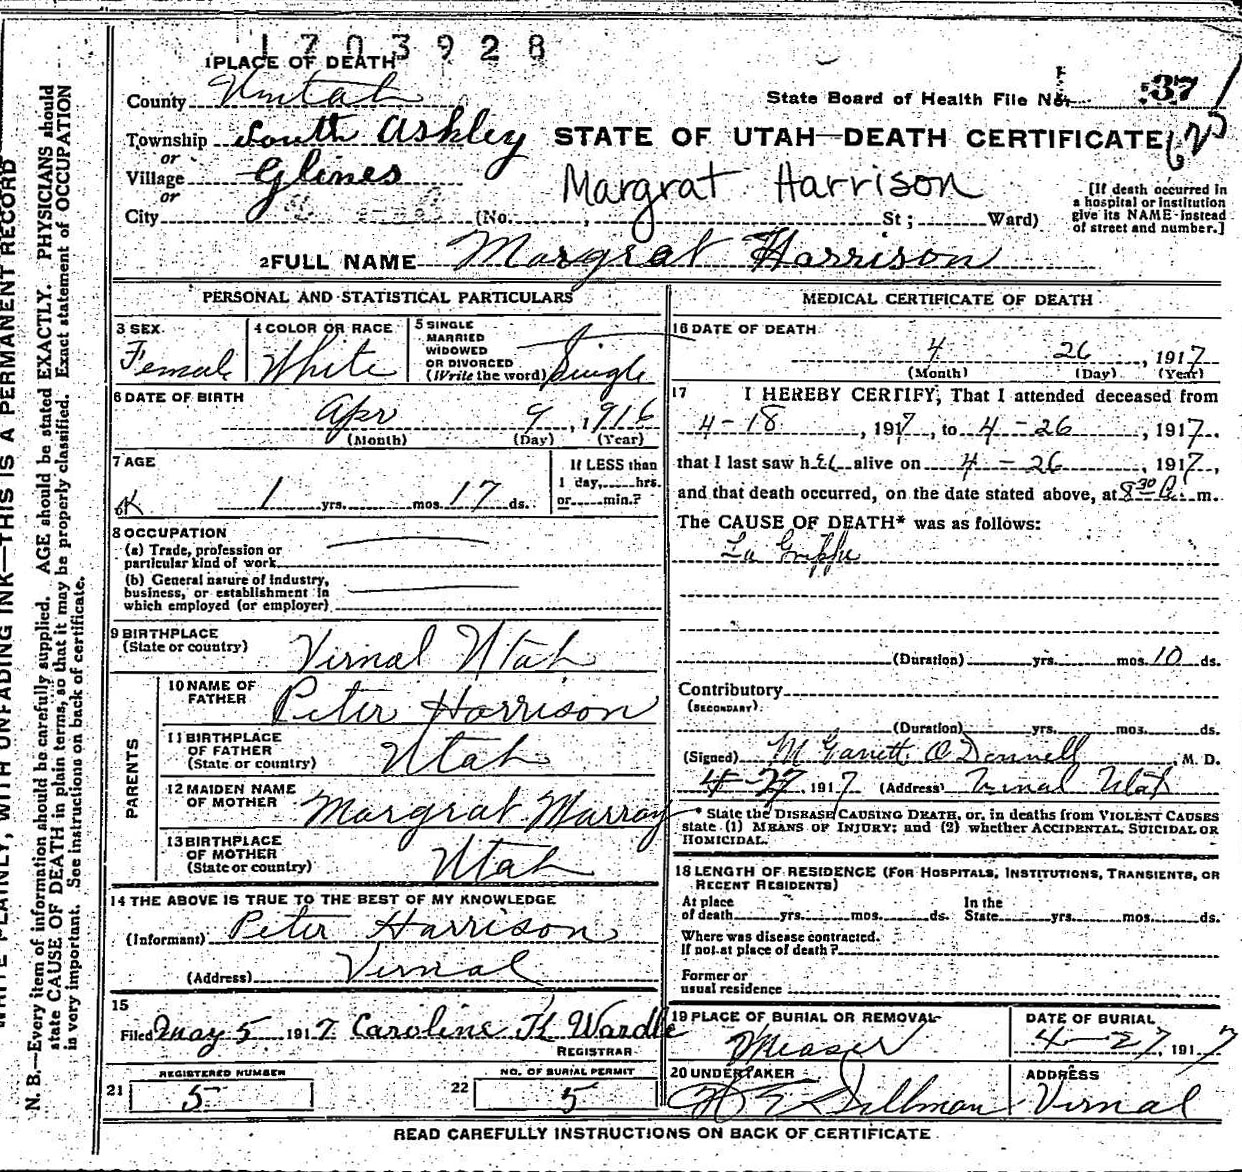 1703928
1 PLACE OF DEATH
County Uintah
State Board of Health File No. 37
Township South Ashley
STATE OF UTAH—DEATH CERTIFICATE
or
Village Glines
Margrat Harrison
or
City (No. , St ; Ward)
[If death occurred in
a hospital or institution
give its NAME instead
of street and number.]
2 FULL NAME Margrat Harrison
PERSONAL AND STATISTICAL PARTICULARS
3 SEX
Female
4 COLOR OR RACE
White
5 SINGLE
MARRIED
WIDOWED
OR DIVORCED
(Write the word) Single
6 DATE OF BIRTH
Apr 9, 1916
(Month) (Day) (Year)
7 AGE
1 yrs. mos. 17 ds.
If LESS than
1 day, hrs.
or min.?
8 OCCUPATION
(a) Trade, profession or
particular kind of work
(b) General nature of industry,
business, or establishment in
which employed (or employer)
9 BIRTHPLACE
(State or country) Vernal Utah
PARENTS
10 NAME OF
FATHER Peter Harrison
11 BIRTHPLACE
OF FATHER
(State or country) Utah
12 MAIDEN NAME
OF MOTHER Margrat Murray
13 BIRTHPLACE
OF MOTHER
(State or country) Utah
14 THE ABOVE IS TRUE TO THE BEST OF MY KNOWLEDGE
(Informant) Peter Harrison
(Address) Vernal
15
Filed May 5 1917 Caroline K Wardle
REGISTRAR
21 REGISTERED NUMBER
5
22 NO. OF BURIAL PERMIT
5
MEDICAL CERTIFICATE OF DEATH
16 DATE OF DEATH
4 26, 1917
(Month) (Day) (Year)
17 I HEREBY CERTIFY, That I attended deceased from
4-18, 1917, to 4-26, 1917,
that I last saw her alive on 4-26, 1917,
and that death occurred, on the date stated above, at 8 30 m.
The CAUSE OF DEATH* was as follows:
La Grippe
(Duration) yrs. mos. 10 ds.
Contributory
(SECONDARY)
(Duration) yrs. mos. ds.
(Signed) M Garrett O Donnell, M. D.
4-27, 1917 (Address) Vernal Utah
* State the DISEASE CAUSING DEATH, or, in deaths from VIOLENT CAUSES
state (1) MEANS OF INJURY; and (2) whether ACCIDENTAL, SUICIDAL OR
HOMICIDAL.
18 LENGTH OF RESIDENCE (FOR HOSPITALS, INSTITUTIONS, TRANSIENTS, OR
RECENT RESIDENTS)
At place
of death yrs. mos. ds.
In the
State yrs. mos. ds.
Where was disease contracted.
If not at place of death?
Former or
usual residence
19 PLACE OF BURIAL OR REMOVAL
DATE OF BURIAL
4-27, 1917
20 UNDERTAKER
Dillman
ADDRESS
Vernal
READ CAREFULLY INSTRUCTIONS ON BACK OF CERTIFICATE
WRITE PLAINLY, WITH UNFADING INK—THIS IS A PERMANENT RECORD
N. B.—Every item of information should be carefully supplied. AGE should be stated EXACTLY. PHYSICIANS should
state CAUSE OF DEATH in plain terms, so that it may be properly classified. Exact statement of OCCUPATION
is very important. See instructions on back of certificate.